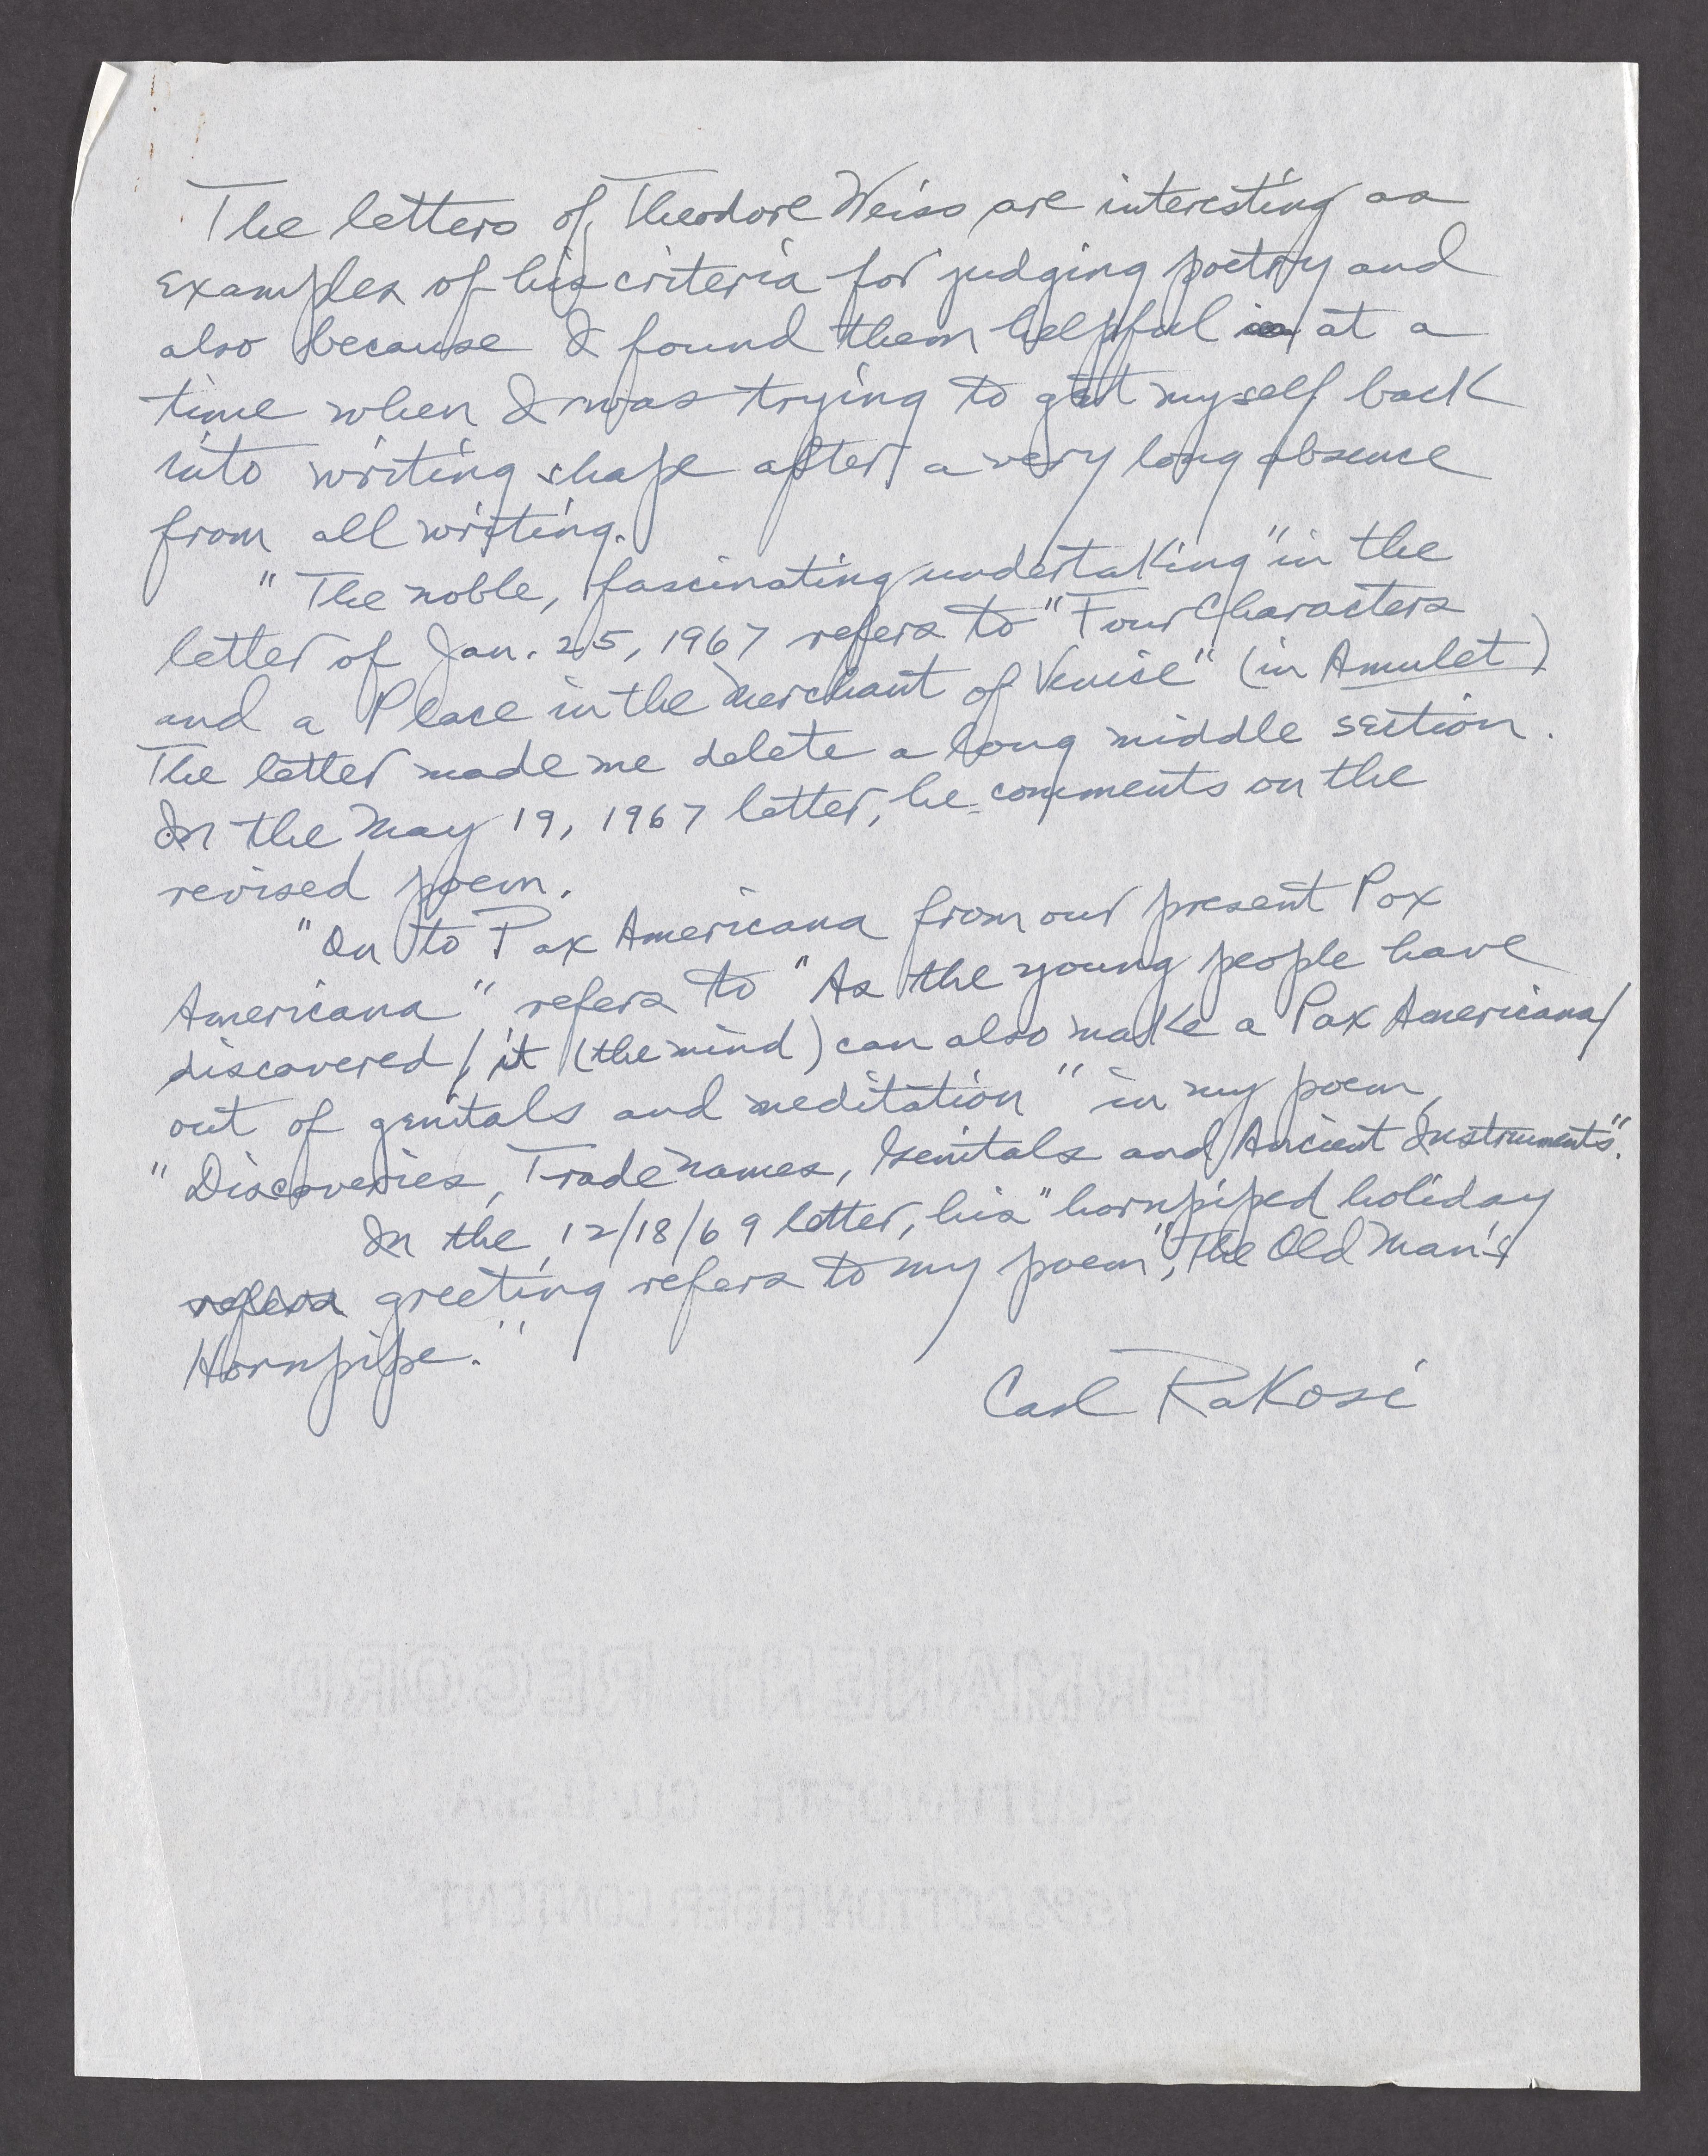 The letters of Theodore Weiss are interesting as
examples of his criteria for judging poetry and
also because I found them helpful at a
time when I was trying to get myself back
into writing shape after a very long absence
from all writing.
"The noble, fascinating undertaking" in the
letter of Jan. 25, 1967 refers to "Four Characters
and a Place in the Merchant of Venice" (in Amulet)
The letter made me delete a long middle section.
In the May 19, 1967 letter, he comments on the
revised poem.
"On to Pax Americana from our present Pox
Americana" refers to "As the young people have
discovered/ it (the mind) can also make a Pax Americana/
out of genitals and meditation" in my poem,
"Discoveries, Trade Names, Genitals and Ancient Instruments".
In the 12/18/69 letter, his "hornpiped holiday
refers greeting refers to my poem, "The Old Man's
Hornpipe."
Carl Rakosi
PERMANENT RECORD
SOUTHWORTH CO. U.S.A.
COTTON FIBER CONTENT